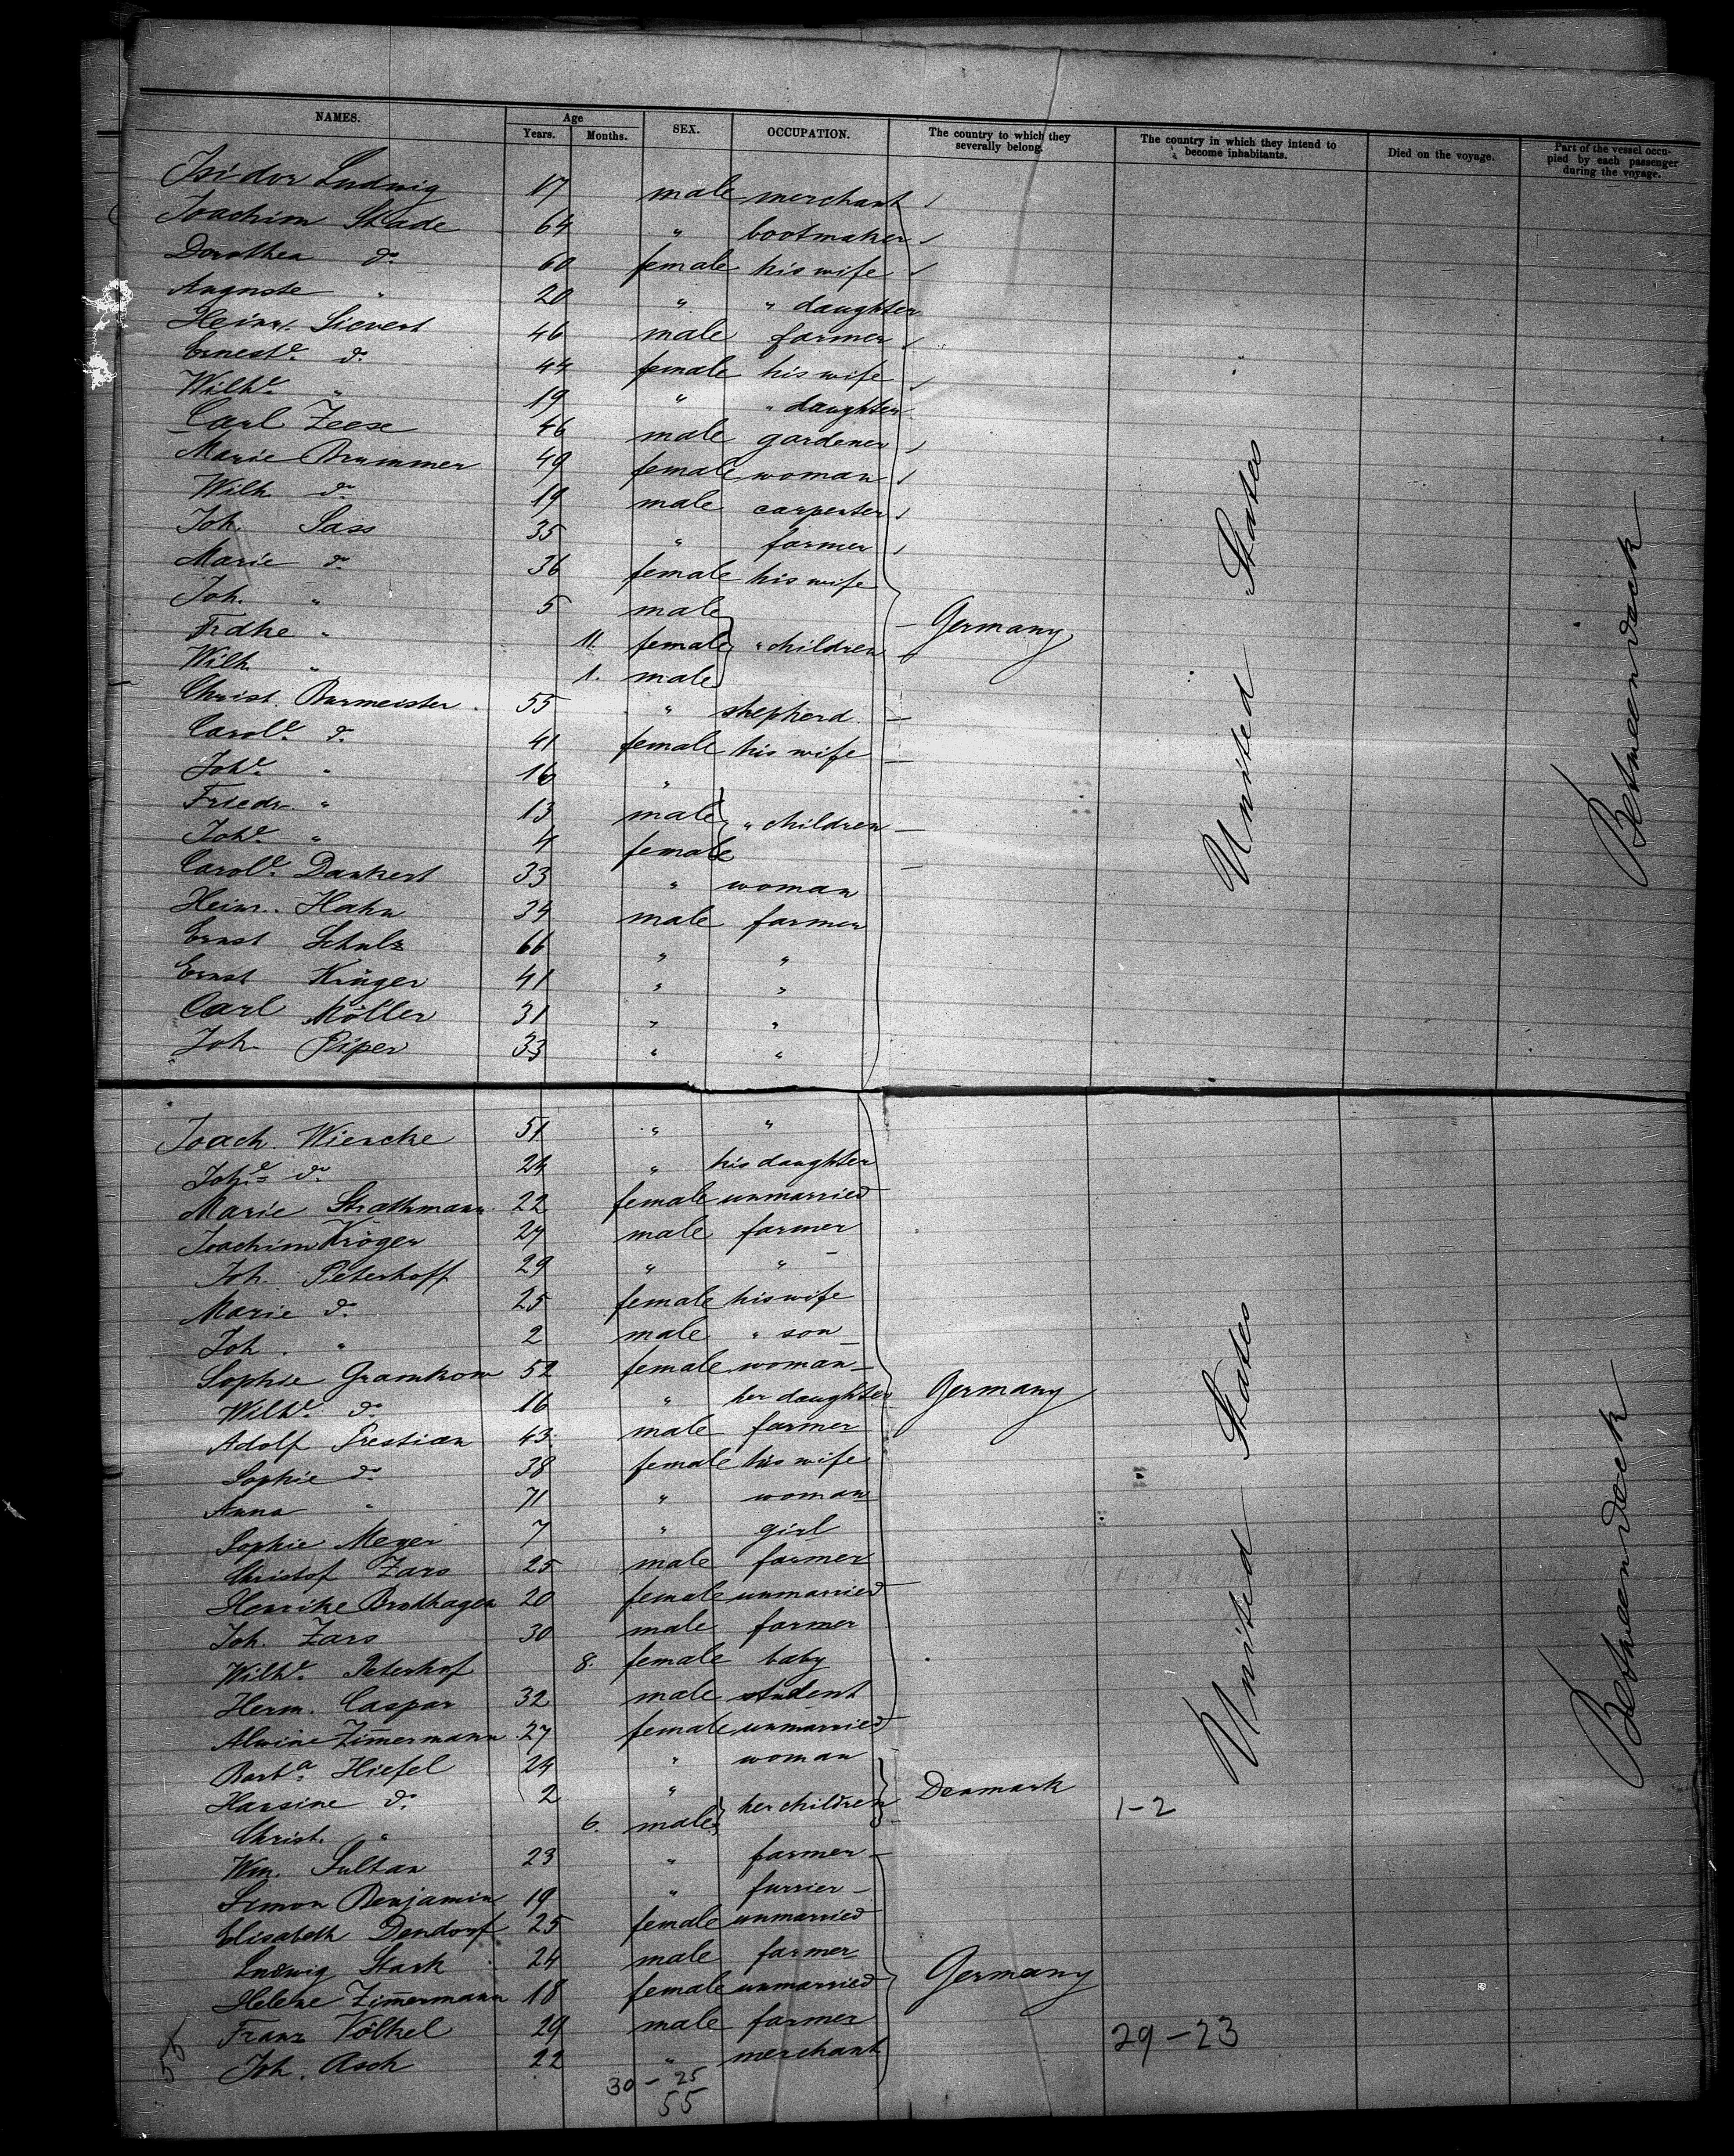 NAMES. Age SEX. OCCUPATION. The country to which they severally belong. The country in which they intend to become inhabitants. Died on the voyage. Part of the vessel occupied by each passenger during the voyage.
Years. Months.
Isidor Ludwig 17 male merchant
Joachim Stade 64 " bootmaker
Dorothea do 60 female his wife
Auguste " 20 " " daughter
Heinr. Sievert 46 male farmer
Erneste do 44 female his wife
Wilhe " 19 " " daughter
Carl Zeese 46 male gardener
Marie Brummer 49 female woman
Wilh do 19 male carpenter
Joh. Sass 35 " farmer
Marie do 36 female his wife
Joh. " 5 male
Frdke " 11. female " children Germany
Wilh. " 1. male
Christ. Burmeister 55 " shepherd
Carole do 41 female his wife
Johe " 16 "
Friedr. " 13 male " children
Johe " 4 female
Carole Dankert 33 " woman
Heinr. Hahn 34 male farmer
Ernst Schulz 66 " "
Ernst Krüger 41 " "
Carl Möller 31 " "
Joh. Piper 33 " "
United States
Between deck
Joach. Wiencke 51 " "
Johe do 24 " his daughter
Marie Strathmann 22 female unmarried
Joachim Kröger 24 male farmer
Joh. Peterhoff 29 " "
Marie do 25 female his wife
Joh. " 2 male " son
Sophie Gramkow 52 female woman
Wilhe do 16 " her daughter Germany
Adolf Prestian 43 male farmer
Sophie do 38 female his wife
Anna " 71 " woman
Sophie Meyer 7 " girl
Christof Zars 25 male farmer
Henrike Brodhagen 20 female unmarried
Joh. Zars 30 male farmer
Wilhe Peterhof 8. female baby
Herm. Caspar 32 male student
Alwine Zimermann 27 female unmarried
Barta Hiefel 24 " woman
Hansine do 2 " her children Denmark 1-2
Christ. " 6. male
Wm. Sultan 23 " farmer
Simon Benjamin 19 " furrier
Elisabeth Dendorf 25 female unmarried
Ludwig Stark 24 male farmer
Helene Zimermann 18 female unmarried Germany
Franz Völkel 29 male farmer
Joh. Asch 22 " merchant
United States
Between deck
29-23
55
30-25
55